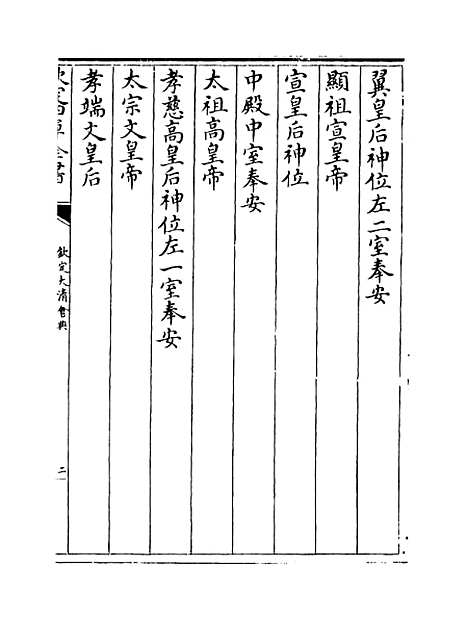 翼皇后神位左二室奉安
顯祖宣皇帝
宣皇后神位
中殿中室奉安
太祖高皇帝
孝慈高皇后神位左一室奉安
太宗文皇帝
孝端文皇后
欽定大清會典
二